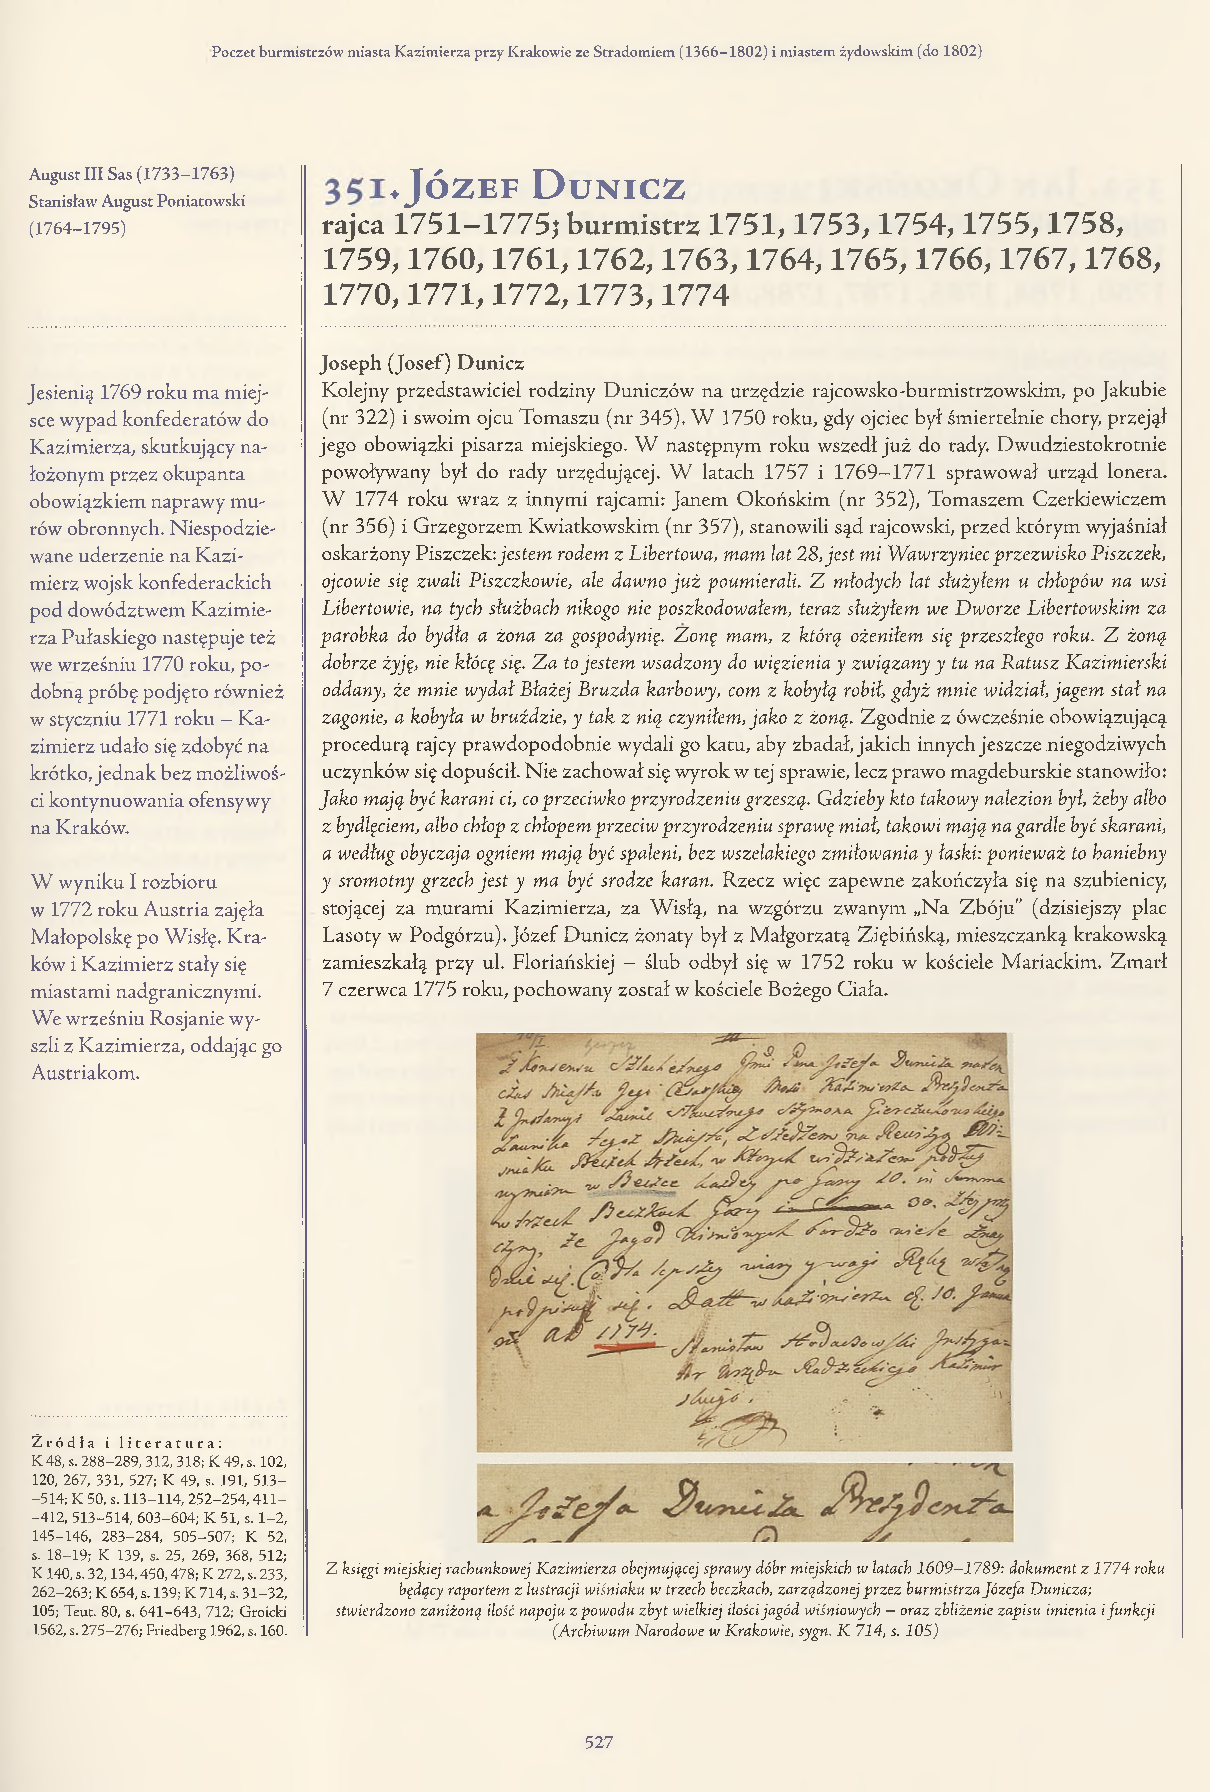 Poczet burmistrzów miasta Kazimierza przy Krakowie ze Stradomiem (1366–1802) i miastem żydowskim (do 1802)
August III Sas (1733–1763)
Stanisław August Poniatowski
(1764–1795)
Jesienią 1769 roku ma miej-
sce wypad konfederatów do
Kazimierza, skutkujący na-
łożonym przez okupanta
obowiązkiem naprawy mu-
rów obronnych. Niespodzie-
wane uderzenie na Kazi-
mierz wojsk konfederackich
pod dowództwem Kazimie-
rza Pułaskiego następuje też
we wrześniu 1770 roku, po-
dobną próbę podjęto również
w styczniu 1771 roku – Ka-
zimierz udało się zdobyć na
krótko, jednak bez możliwoś-
ci kontynuowania ofensywy
na Kraków.
W wyniku I rozbioru
w 1772 roku Austria zajęła
Małopolskę po Wisłę. Kra-
ków i Kazimierz stały się
miastami nadgranicznymi.
We wrześniu Rosjanie wy-
szli z Kazimierza, oddając go
Austriakom.
Źródła i literatura:
K 48, s. 288–289, 312, 318; K 49, s. 102,
120, 267, 331, 527; K 49, s. 191, 513–
–514; K 50, s. 113–114, 252–254, 411–
–412, 513–514, 603–604; K 51, s. 1–2,
145–146, 283–284, 505–507; K 52,
s. 18–19; K 139, s. 25, 269, 368, 512;
K 140, s. 32, 134, 450, 478; K 272, s. 233,
262–263; K 654, s. 139; K 714, s. 31–32,
105; Teut. 80, s. 641–643, 712; Groicki
1562, s. 275–276; Friedberg 1962, s. 160.
351. Józef Dunicz
rajca 1751–1775; burmistrz 1751, 1753, 1754, 1755, 1758,
1759, 1760, 1761, 1762, 1763, 1764, 1765, 1766, 1767, 1768,
1770, 1771, 1772, 1773, 1774
Joseph (Josef) Dunicz
Kolejny przedstawiciel rodziny Duniczów na urzędzie rajcowsko-burmistrzowskim, po Jakubie
(nr 322) i swoim ojcu Tomaszu (nr 345). W 1750 roku, gdy ojciec był śmiertelnie chory, przejął
jego obowiązki pisarza miejskiego. W następnym roku wszedł już do rady. Dwudziestokrotnie
powoływany był do rady urzędującej. W latach 1757 i 1769–1771 sprawował urząd lonera.
W 1774 roku wraz z innymi rajcami: Janem Okońskim (nr 352), Tomaszem Czerkiewiczem
(nr 356) i Grzegorzem Kwiatkowskim (nr 357), stanowili sąd rajcowski, przed którym wyjaśniał
oskarżony Piszczek: jestem rodem z Libertowa, mam lat 28, jest mi Wawrzyniec przezwisko Piszczek,
ojcowie się zwali Piszczkowie, ale dawno już poumierali. Z młodych lat służyłem u chłopów na wsi
Libertowie, na tych służbach nikogo nie poszkodowałem, teraz służyłem we Dworze Libertowskim za
parobka do bydła a żona za gospodynię. Żonę mam, z którą ożeniłem się przeszłego roku. Z żoną
dobrze żyję, nie kłócę się. Za to jestem wsadzony do więzienia y związany y tu na Ratusz Kazimierski
oddany, że mnie wydał Błażej Bruzda karbowy, com z kobyłą robił, gdyż mnie widział, jagem stał na
zagonie, a kobyła w bruździe, y tak z nią czyniłem, jako z żoną. Zgodnie z ówcześnie obowiązującą
procedurą rajcy prawdopodobnie wydali go katu, aby zbadał, jakich innych jeszcze niegodziwych
uczynków się dopuścił. Nie zachował się wyrok w tej sprawie, lecz prawo magdeburskie stanowiło:
Jako mają być karani ci, co przeciwko przyrodzeniu grzeszą. Gdzieby kto takowy nalezion był, żeby albo
z bydlęciem, albo chłop z chłopem przeciw przyrodzeniu sprawę miał, takowi mają na gardle być skarani,
a według obyczaja ogniem mają być spaleni, bez wszelakiego zmiłowania y łaski: ponieważ to haniebny
y sromotny grzech jest y ma być srodze karan. Rzecz więc zapewne zakończyła się na szubienicy,
stojącej za murami Kazimierza, za Wisłą, na wzgórzu zwanym „Na Zbóju" (dzisiejszy plac
Lasoty w Podgórzu). Józef Dunicz żonaty był z Małgorzatą Ziębińską, mieszczanką krakowską
zamieszkałą przy ul. Floriańskiej – ślub odbył się w 1752 roku w kościele Mariackim. Zmarł
7 czerwca 1775 roku, pochowany został w kościele Bożego Ciała.
Z Konsensu Szlachetnego Jozefa Dunicza
czas Miasta Jego Kazimierza Prezydenta
Z
Ławnika tegoż Miasta, na
trzech, w których widziałem podług
w Beczce każdey po 10. in Summa
w trzech Beczkach 30.
że Jagod bardzo wiele
się. dla lepszey wiary y wagi Ręką
podpisuję się. Datt w Kazimierzu d. 10.
AD 1774.
Stanisław
Urzędu Radzieckiego
a Jozefa Dunicza Prezydenta
Z księgi miejskiej rachunkowej Kazimierza obejmującej sprawy dóbr miejskich w latach 1609–1789: dokument z 1774 roku
będący raportem z lustracji wiśniaku w trzech beczkach, zarządzonej przez burmistrza Józefa Dunicza;
stwierdzono zaniżoną ilość napoju z powodu zbyt wielkiej ilości jagód wiśniowych – oraz zbliżenie zapisu imienia i funkcji
(Archiwum Narodowe w Krakowie, sygn. K 714, s. 105)
527